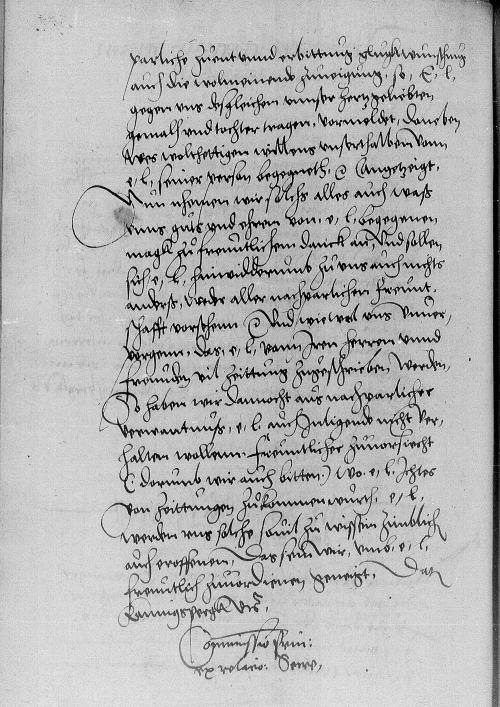 parliche zuent unnd erbittung gluckwunschung
auch die wolmeinende zuneigung, so, E, l,
gegen uns desgleichen unnser hertzgeliebten
gemalh und tochter tragen, vormeldet, daneben
wes wolthettigen willens unserthalben vonn
e, l, seiner person begegneth, angetzeigt,
Nun nhemen wir solchs alles auch waß
unns guts und ehren von, e, l, begegenen
magk zu freuntlichem danck an, Und sollen
sich, e, l, hinwidderumb zu uns auch nichts
anderß, dan aller nachparlichen freunt,
schafft vorsehenn Und wiewol uns unuer,
porgenn, das, e, l, vonn Iren herren unnd
freunden vil zeittung zugeschrieben werden,
So haben wir dannocht aus nachparlicher
verwantnus, e, l, auch Inligende nicht ver,
halten wollenn, freuntlicher zuuorsicht
(dorumb wir auch bitten:) Wo, e, l, Ichtes
von zeittungen zukommen wurth, e, l,
werden uns solche souil zu wissen zimblich
auch eroffenen, Das sein wir, umb, e, l,
freuntlich zuuordienen geneigt, Dat
Konnigspergk Uts,
Commissio prin:
ex relacio: Secre,